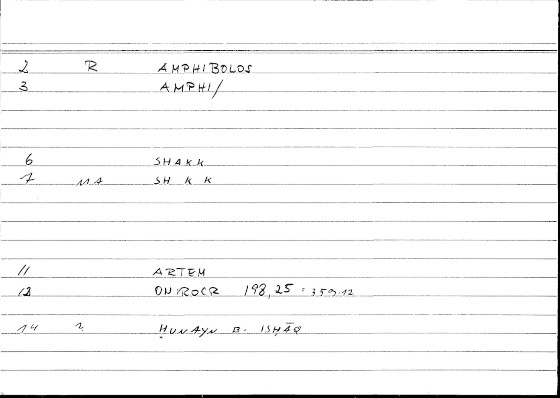 2 R AMPHIBOLOS
3 AMPHI/
6 SHAKK
7 MA SH K K
11 ARTEM
12 ONIROCR 198,25 = 359.12
14 2 ḤUNAYN B. ISḤĀQ